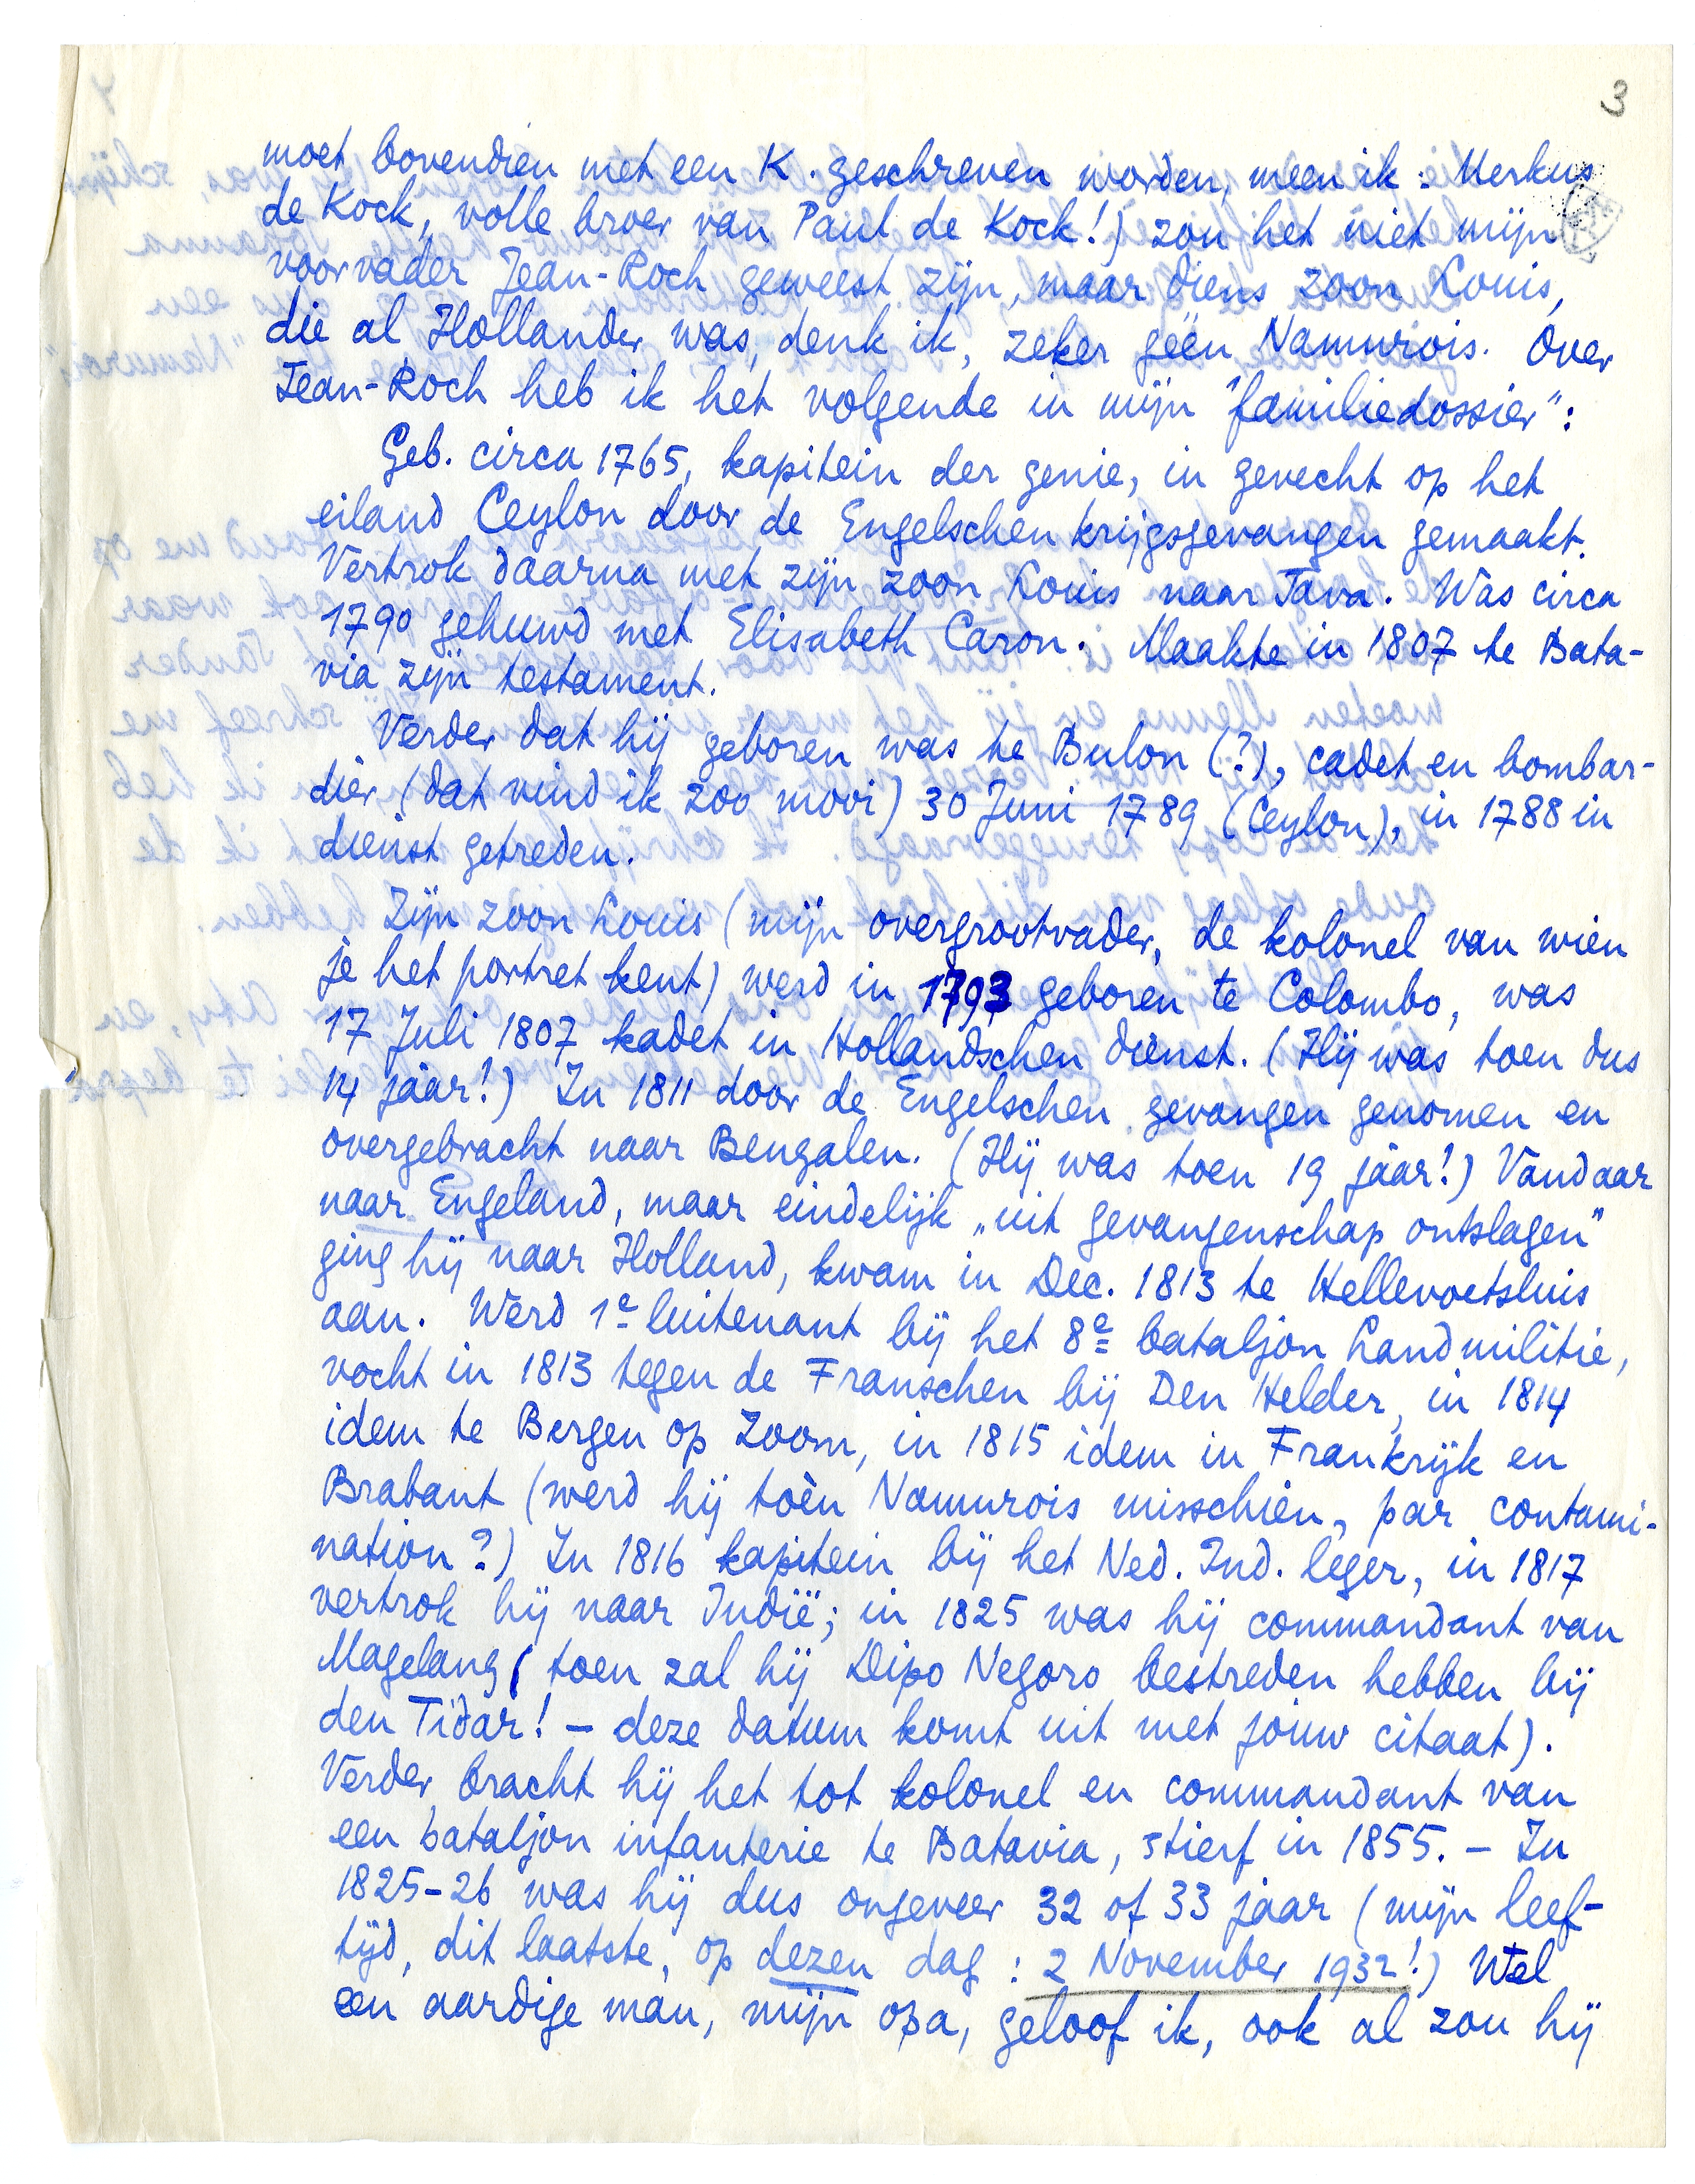 3
moet bovendien met een K. geschreven worden, meen ik: Merkus
de Kock, volle broer van Paul de Kock!) zou het niet mijn
voorvader Jean-Roch geweest zijn, maar diens zoon Louis,
die al Hollander was, denk ik, zeker géén Namurois. Over
Jean-Roch heb ik het volgende in mijn "familiedossier":
Geb. circa 1765, kapitein der genie, in gevecht op het
eiland Ceylon door de Engelschen krijgsgevangen gemaakt.
Vertrok daarna met zijn zoon Louis naar Java. Was circa
1790 gehuwd met Elisabeth Caron. Maakte in 1807 te Bata-
via zijn testament.
Verder dat hij geboren was te Bulon (?), cadet en bombar-
dier (dat vind ik zoo mooi) 30 Juni 1789 (Ceylon), in 1788 in
dienst getreden.
Zijn zoon Louis (mijn overgrootvader, de kolonel van wien
je het portret kent) werd in 1793 geboren te Colombo, was
17 Juli 1807 kadet in Hollandschen dienst. (Hij was toen dus
14 jaar!) In 1811 door de Engelschen gevangen genomen en
overgebracht naar Bengalen. (Hij was toen 19 jaar!) Vandaar
naar Engeland, maar eindelijk „uit gevangenschap ontslagen"
ging hij naar Holland, kwam in Dec. 1813 te Hellevoetsluis
aan. Werd 1e luitenant bij het 8e bataljon Landmilitie,
vocht in 1813 tegen de Franschen bij Den Helder, in 1814
idem te Bergen op Zoom, in 1815 idem in Frankrijk en
Brabant (werd hij toèn Namurois misschien, par contami-
nation?) In 1816 kapitein bij het Ned. Ind. leger, in 1817
vertrok hij naar Indië; in 1825 was hij commandant van
Magelang (toen zal hij Dipo Negoro bestreden hebben bij
den Tidar! – deze datum komt uit met jouw citaat).
Verder bracht hij het tot kolonel en commandant van
een bataljon infanterie te Batavia, stierf in 1855. – In
1825-26 was hij dus ongeveer 32 of 33 jaar (mijn leef-
tijd, dit laatste, op dezen dag: 2 November 1932!) Wel
een aardige man, mijn opa, geloof ik, ook al zou hij